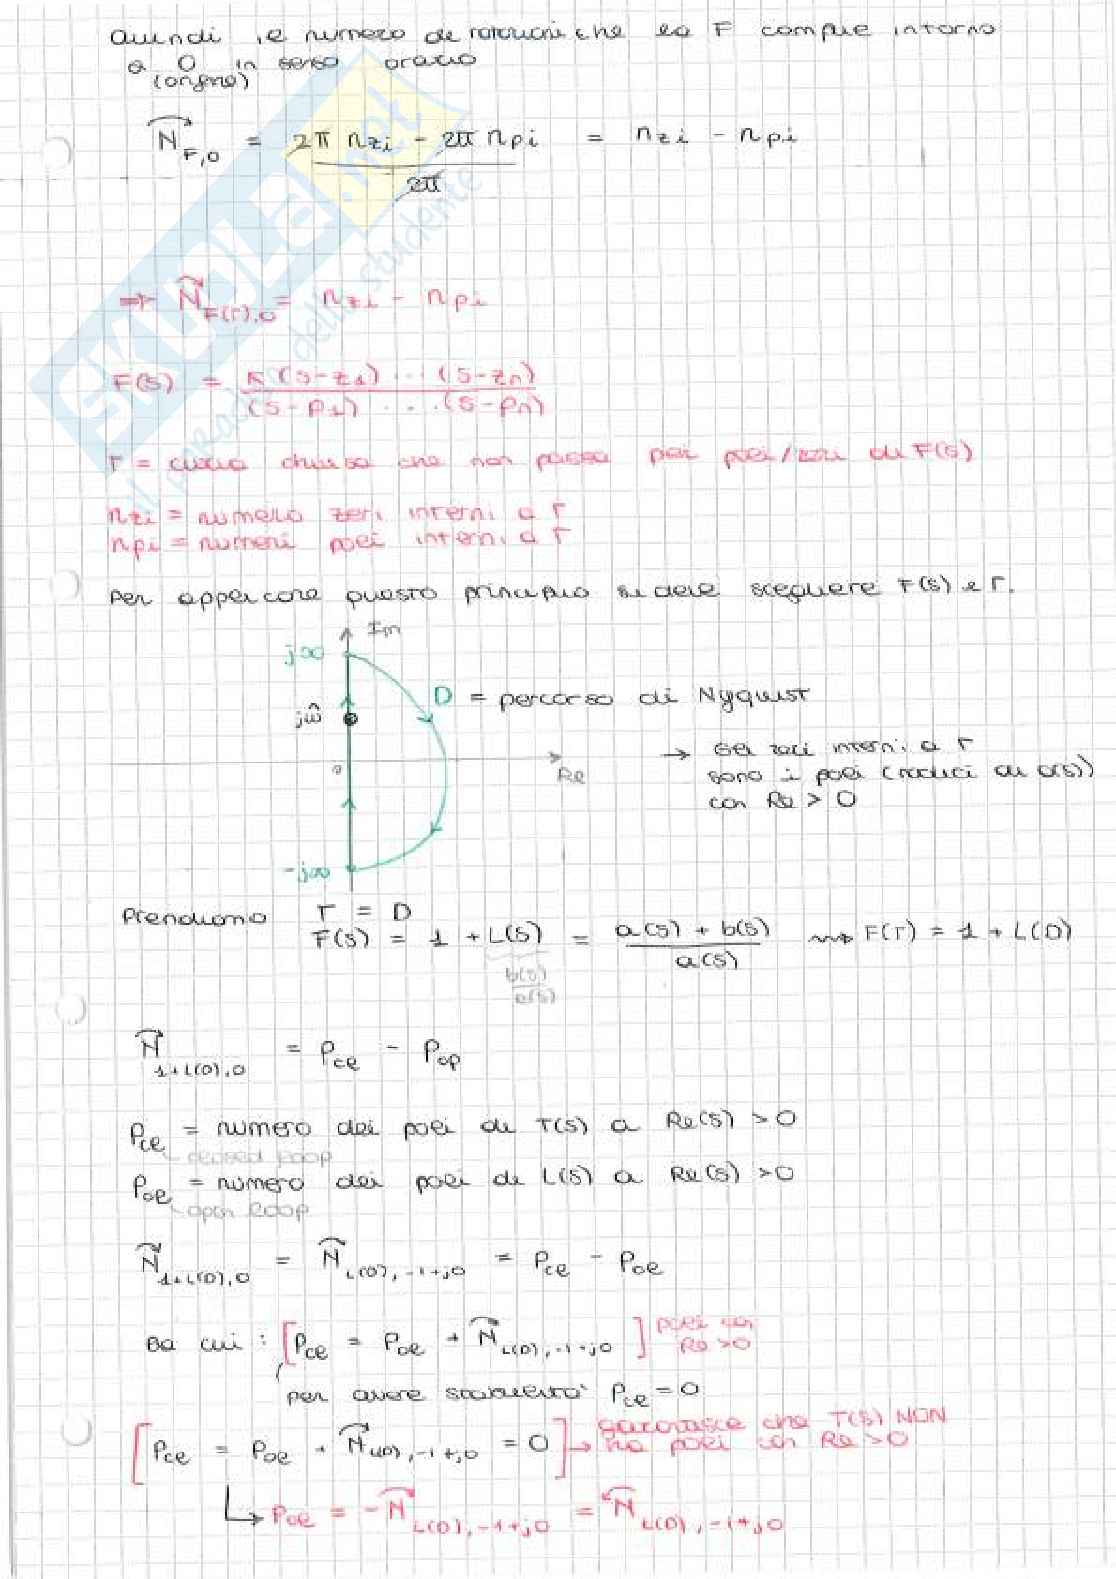 Quindi il numero di rotazioni che la F compie intorno
a 0 in senso orario
(origine)
N_F,0 = 2π n_zi - 2π n_pi / 2π = n_zi - n_pi
⇒ N_F(Γ),0 = n_zi - n_pi
F(s) = K (s-z_1) ... (s-z_n) / (s-p_1) ... (s-p_n)
Γ = curva chiusa che non passa per poli/zeri di F(s)
n_zi = numero zeri interni a Γ
n_pi = numeri poli interni a Γ
Per applicare questo principio si deve scegliere F(s) e Γ.
Im
j∞
D = percorso di Nyquist
jω̂
→ Gli zeri interni a Γ
0
Re
sono i poli (radici di
con Re > 0
-j∞
Prendiamo Γ = D
F(s) = 1 + L(s) = a(s) + b(s) / a(s) ⇝ F(Γ) = 1 + L(D)
b(s)
a(s)
N_1+L(D),0 = P_cl - P_op
P_cl = numero dei poli di T(s) a Re(s) > 0
closed loop
P_ol = numero dei poli di L(s) a Re(s) > 0
open loop
N_1+L(D),0 = N_L(D),-1+j0 = P_cl - P_ol
Da cui : [P_cl = P_ol + N_L(D),-1+j0] poli con
Re > 0
per avere stabilità P_cl = 0
[P_cl = P_ol + N_L(D),-1+j0 = 0] → garantisce che T(s) NON
ha poli con Re > 0
↳ P_ol = - N_L(D),-1+j0 = N_L(D),-1+j0
SKUOLA.net
il paradiso dello studente